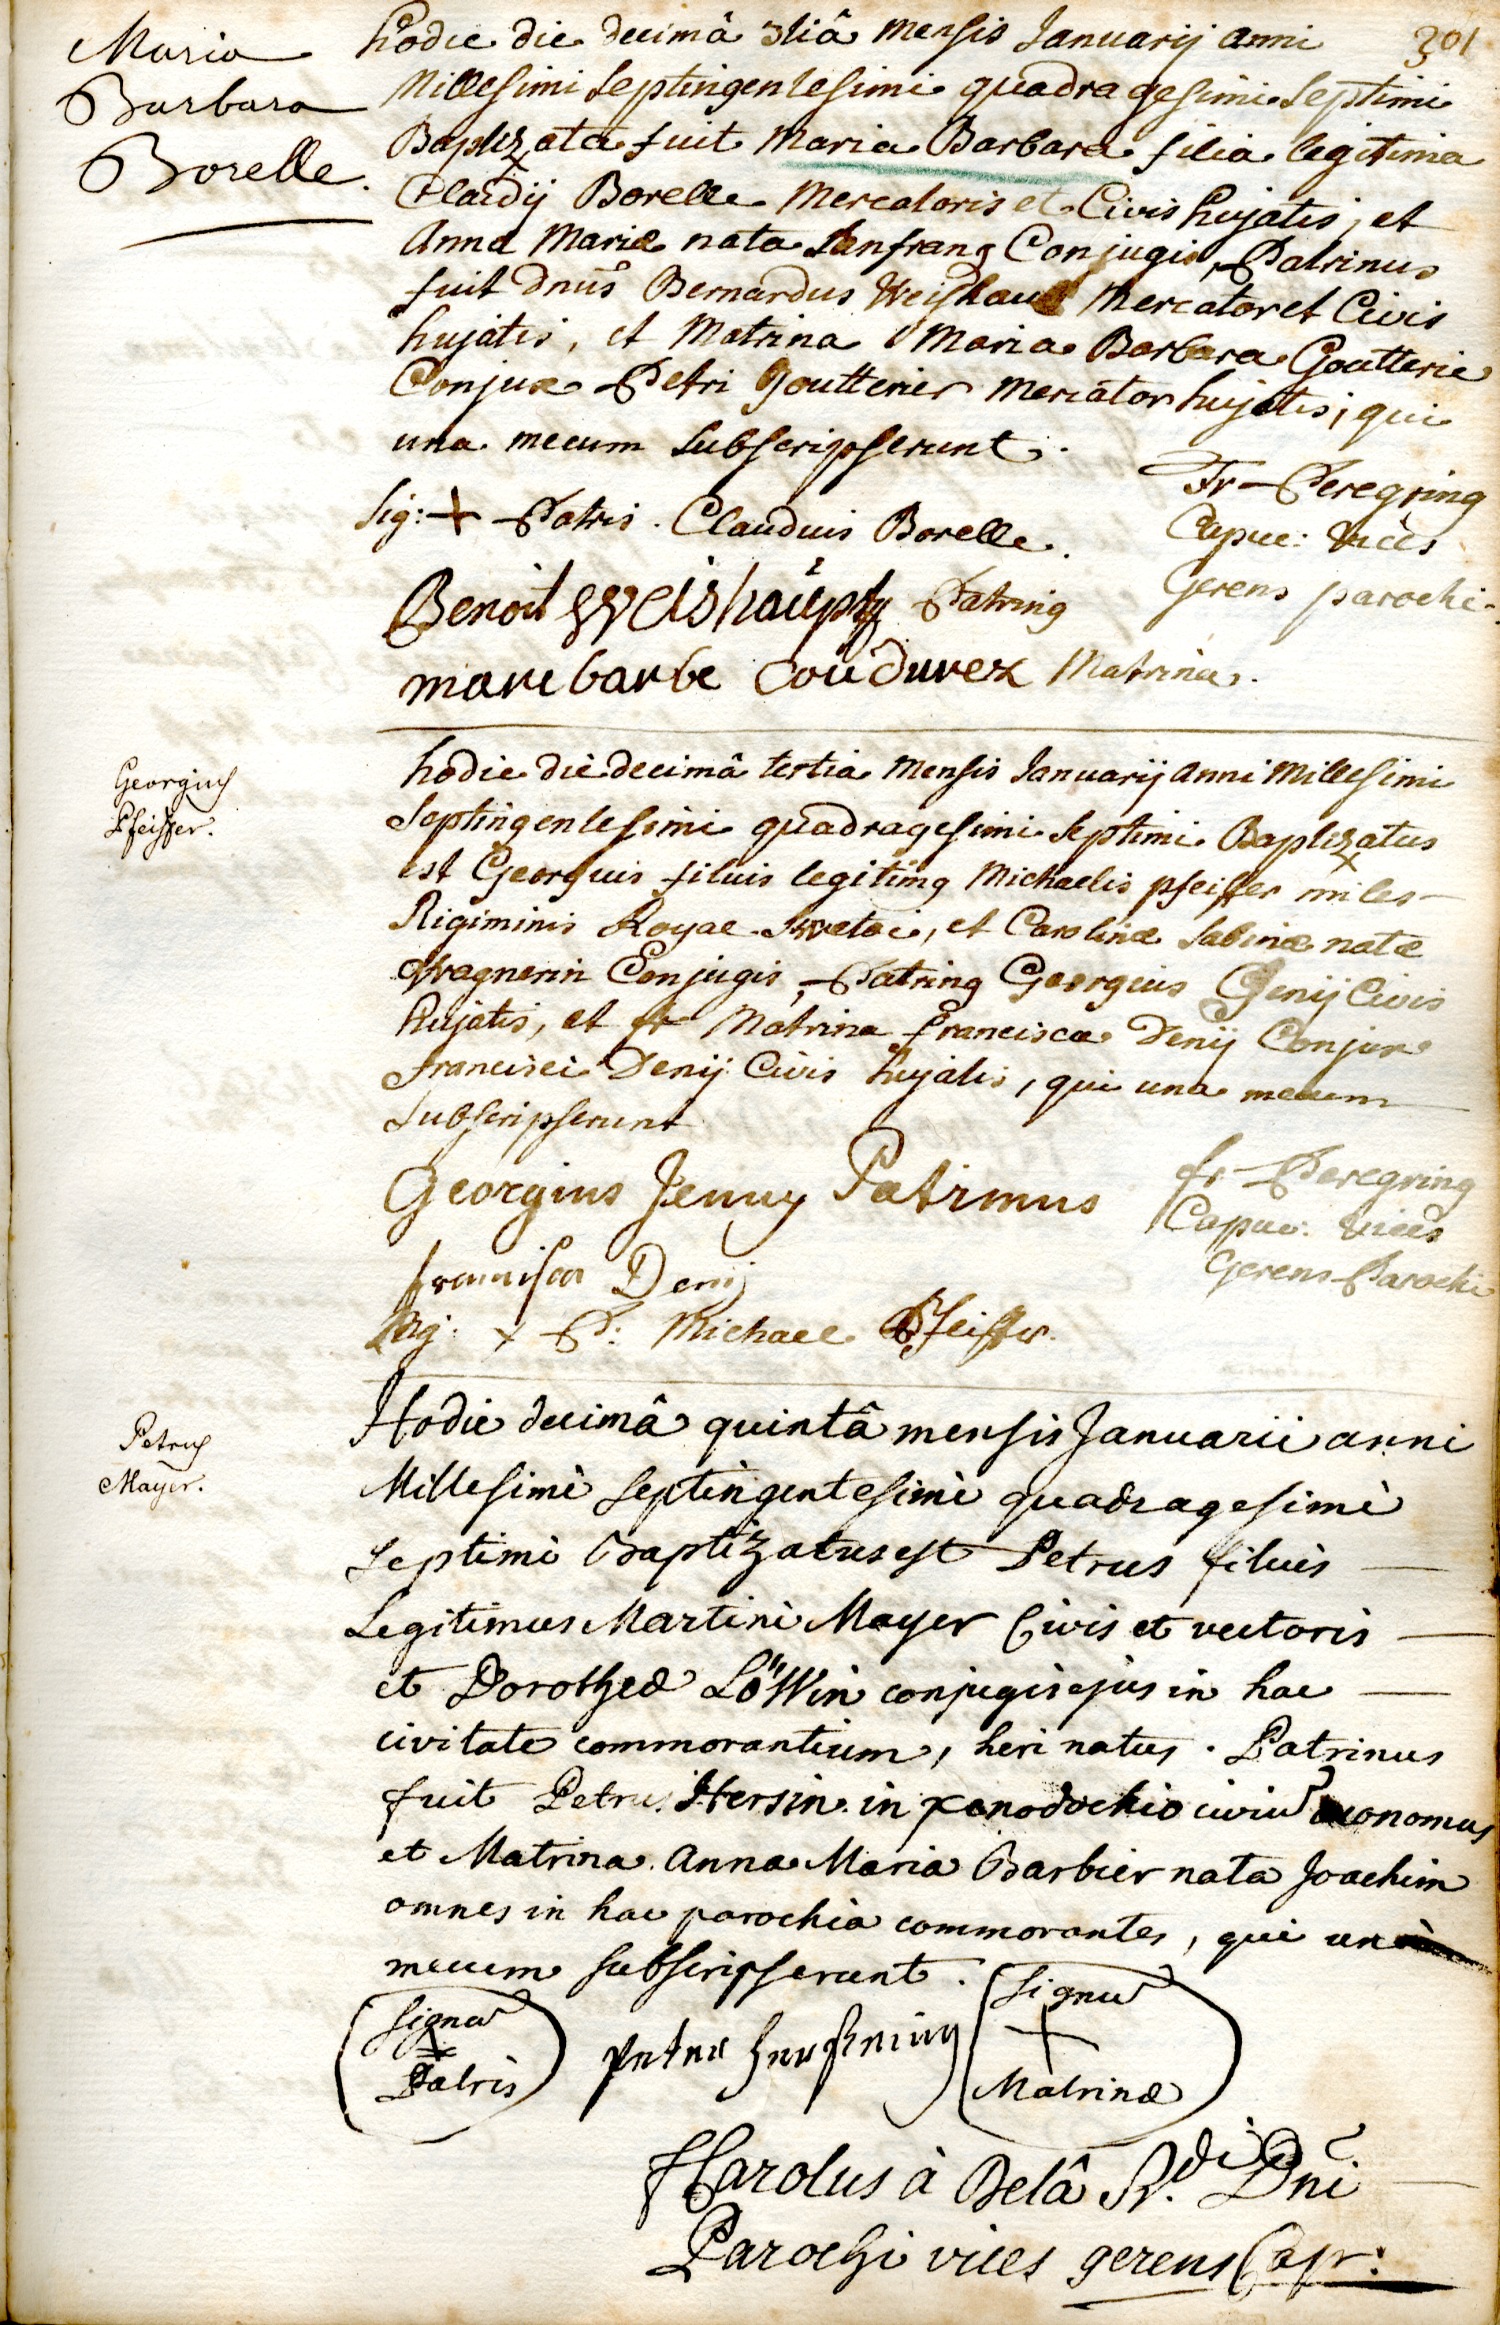 301
Maria
Barbara
Borelle.
hodie die decimâ 3tiâ mensis Januarij anni
Millesimi septingentesimi quadragesimi septimi
Baptizata fuit Maria Barbara filia legitima
Claudij Borelle Mercatoris et Civis hujatis, et
Anna Mariæ nata Lanfranz Conjugis, Patrinus
fuit Dnūs Bernardus Weishau Mercator et Civis
hujatis, et Matrina Maria Barbara Goutterie
Conjux Petri Goutterier Mercator hujatis, qui
una mecum subscripserunt.
Sig: + Patris. Claudius Borelle.
Fr Peregring
Capuc: vices
Gerens parochi.
Benoit Weishaüpt Patring
marebarbe Coudurex Matrina.
Georgius
Pfeiffer.
hodie die decimâ tertia Mensis Januarij anni Millesimi
septingentesimi quadragesimi septimi Baptizatus
est Georgius filius legitimg Michaelis pfeiffer miles
Rigiminis Royae Swetoi, et Carolinæ Sabinæ natæ
Wagnerin Conjugis, Patring Georgius Genij Civis
hujatis, et Matrina francisca Denij Conjux
francisci Denij Civis hujatis, qui una mecum
subscripserunt
Georgius Jenny Patrinus
fr Peregring
Capuc: vices
Gerens Parochi
francisca Denij
Sig: + P: Michael Pfeiffer.
Petrus
Mayer.
Hodie decimâ quintâ mensis Januarii anni
Millesimi septingentesimi quadragesimi
septimi Baptizatus est Petrus filius
Legitimus Martini Mayer Civis et vectoris
et Dorotheæ Löwin conjugis ejus in hac
civitate commorantium, heri natus. Patrinus
fuit Petrus Hersin in xenodochio civiū œconomus
et Matrina Anna Maria Barbier nata Joachim
omnes in hac parochia commorantes, qui unà
mecum subscripserunt.
Signū
+
Patris
Peter
Signū
+
Matrinæ
Harolus à Belâ R.di Dni
Parochi vices gerens Capr: